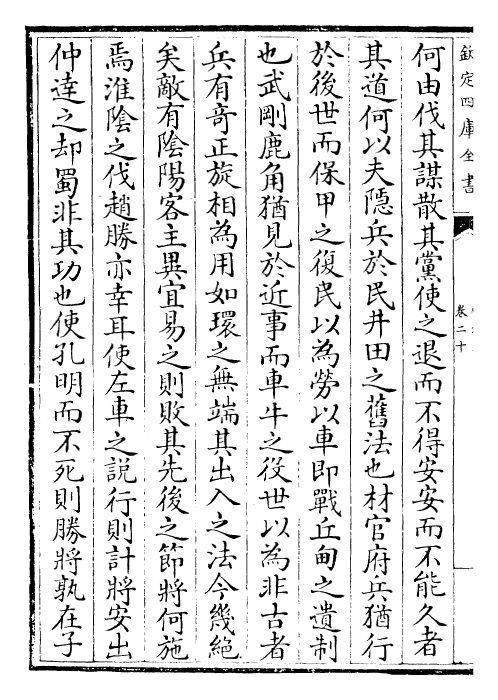 欽定四庫全書
卷二十
何由伐其謀散其黨使之退而不得安安而不能久者
其道何以夫隠兵於民井田之舊法也材官府兵猶行
於後世而保甲之復民以為勞以車即戰丘甸之遺制
也武剛鹿角猶見於近事而車牛之役世以為非古者
兵有竒正旋相為用如環之無端其出入之法今幾絶
矣敵有陰陽客主異宜易之則敗其先後之節將何施
焉淮陰之伐趙勝亦幸耳使左車之説行則計將安出
仲逹之却蜀非其功也使孔明而不死則勝將孰在子